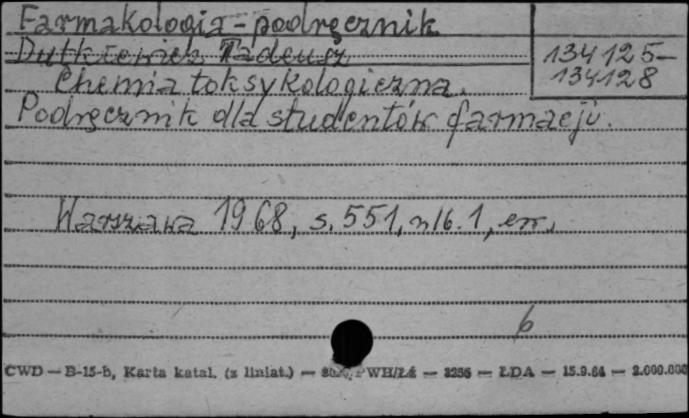 Farmakologia - podręcznik
Dutkiewicz Tadeusz
134125-
134128
Chemia toksykologiczna.
Podręcznik dla studentów farmacji.
Warszawa 1968, s. 551, nlb. 1, err.
b
CWD — B-15-b, Karta katal. (z liniat.) — PWH/Łź — 3256 — ŁDA — 15.9.64 — 2.000.000